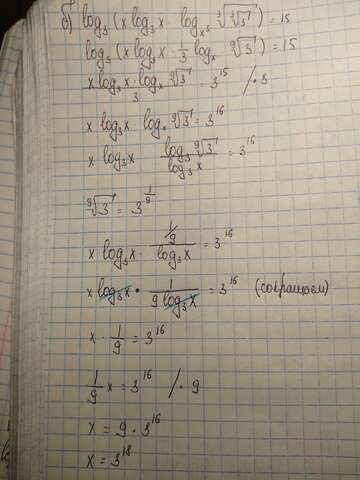 б) log₃ (x log₃x · log_{x³} ∛(∛3)) = 15
log₃ (x log₃x · 1/3 logₓ ⁹√3) = 15
(x log₃x · logₓ ⁹√3)/3 = 3¹⁵ /· 3
x log₃x · logₓ ⁹√3 = 3¹⁶
x log₃x · (log₃ ⁹√3)/(log₃x) = 3¹⁶
⁹√3 = 3^{1/9}
x log₃x · (1/9)/(log₃x) = 3¹⁶
x log₃x · 1/(9 log₃x) = 3¹⁶ (сокращаем)
x · 1/9 = 3¹⁶
1/9 x = 3¹⁶ /· 9
x = 9 · 3¹⁶
x = 3¹⁸